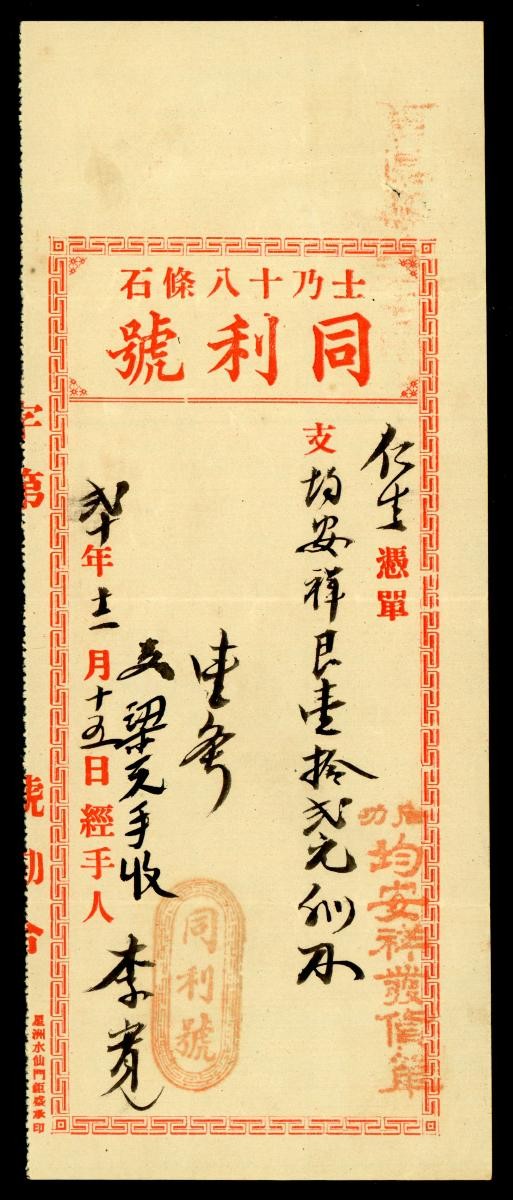 士乃十八條石
同利號
仁生憑單
支均安祥艮壹拾弍元
支梁元手收
弍十年十二月十五日經手人李寬
同利號
均安祥發貨單
字第
號勘合
星洲水仙門鉅盛承印